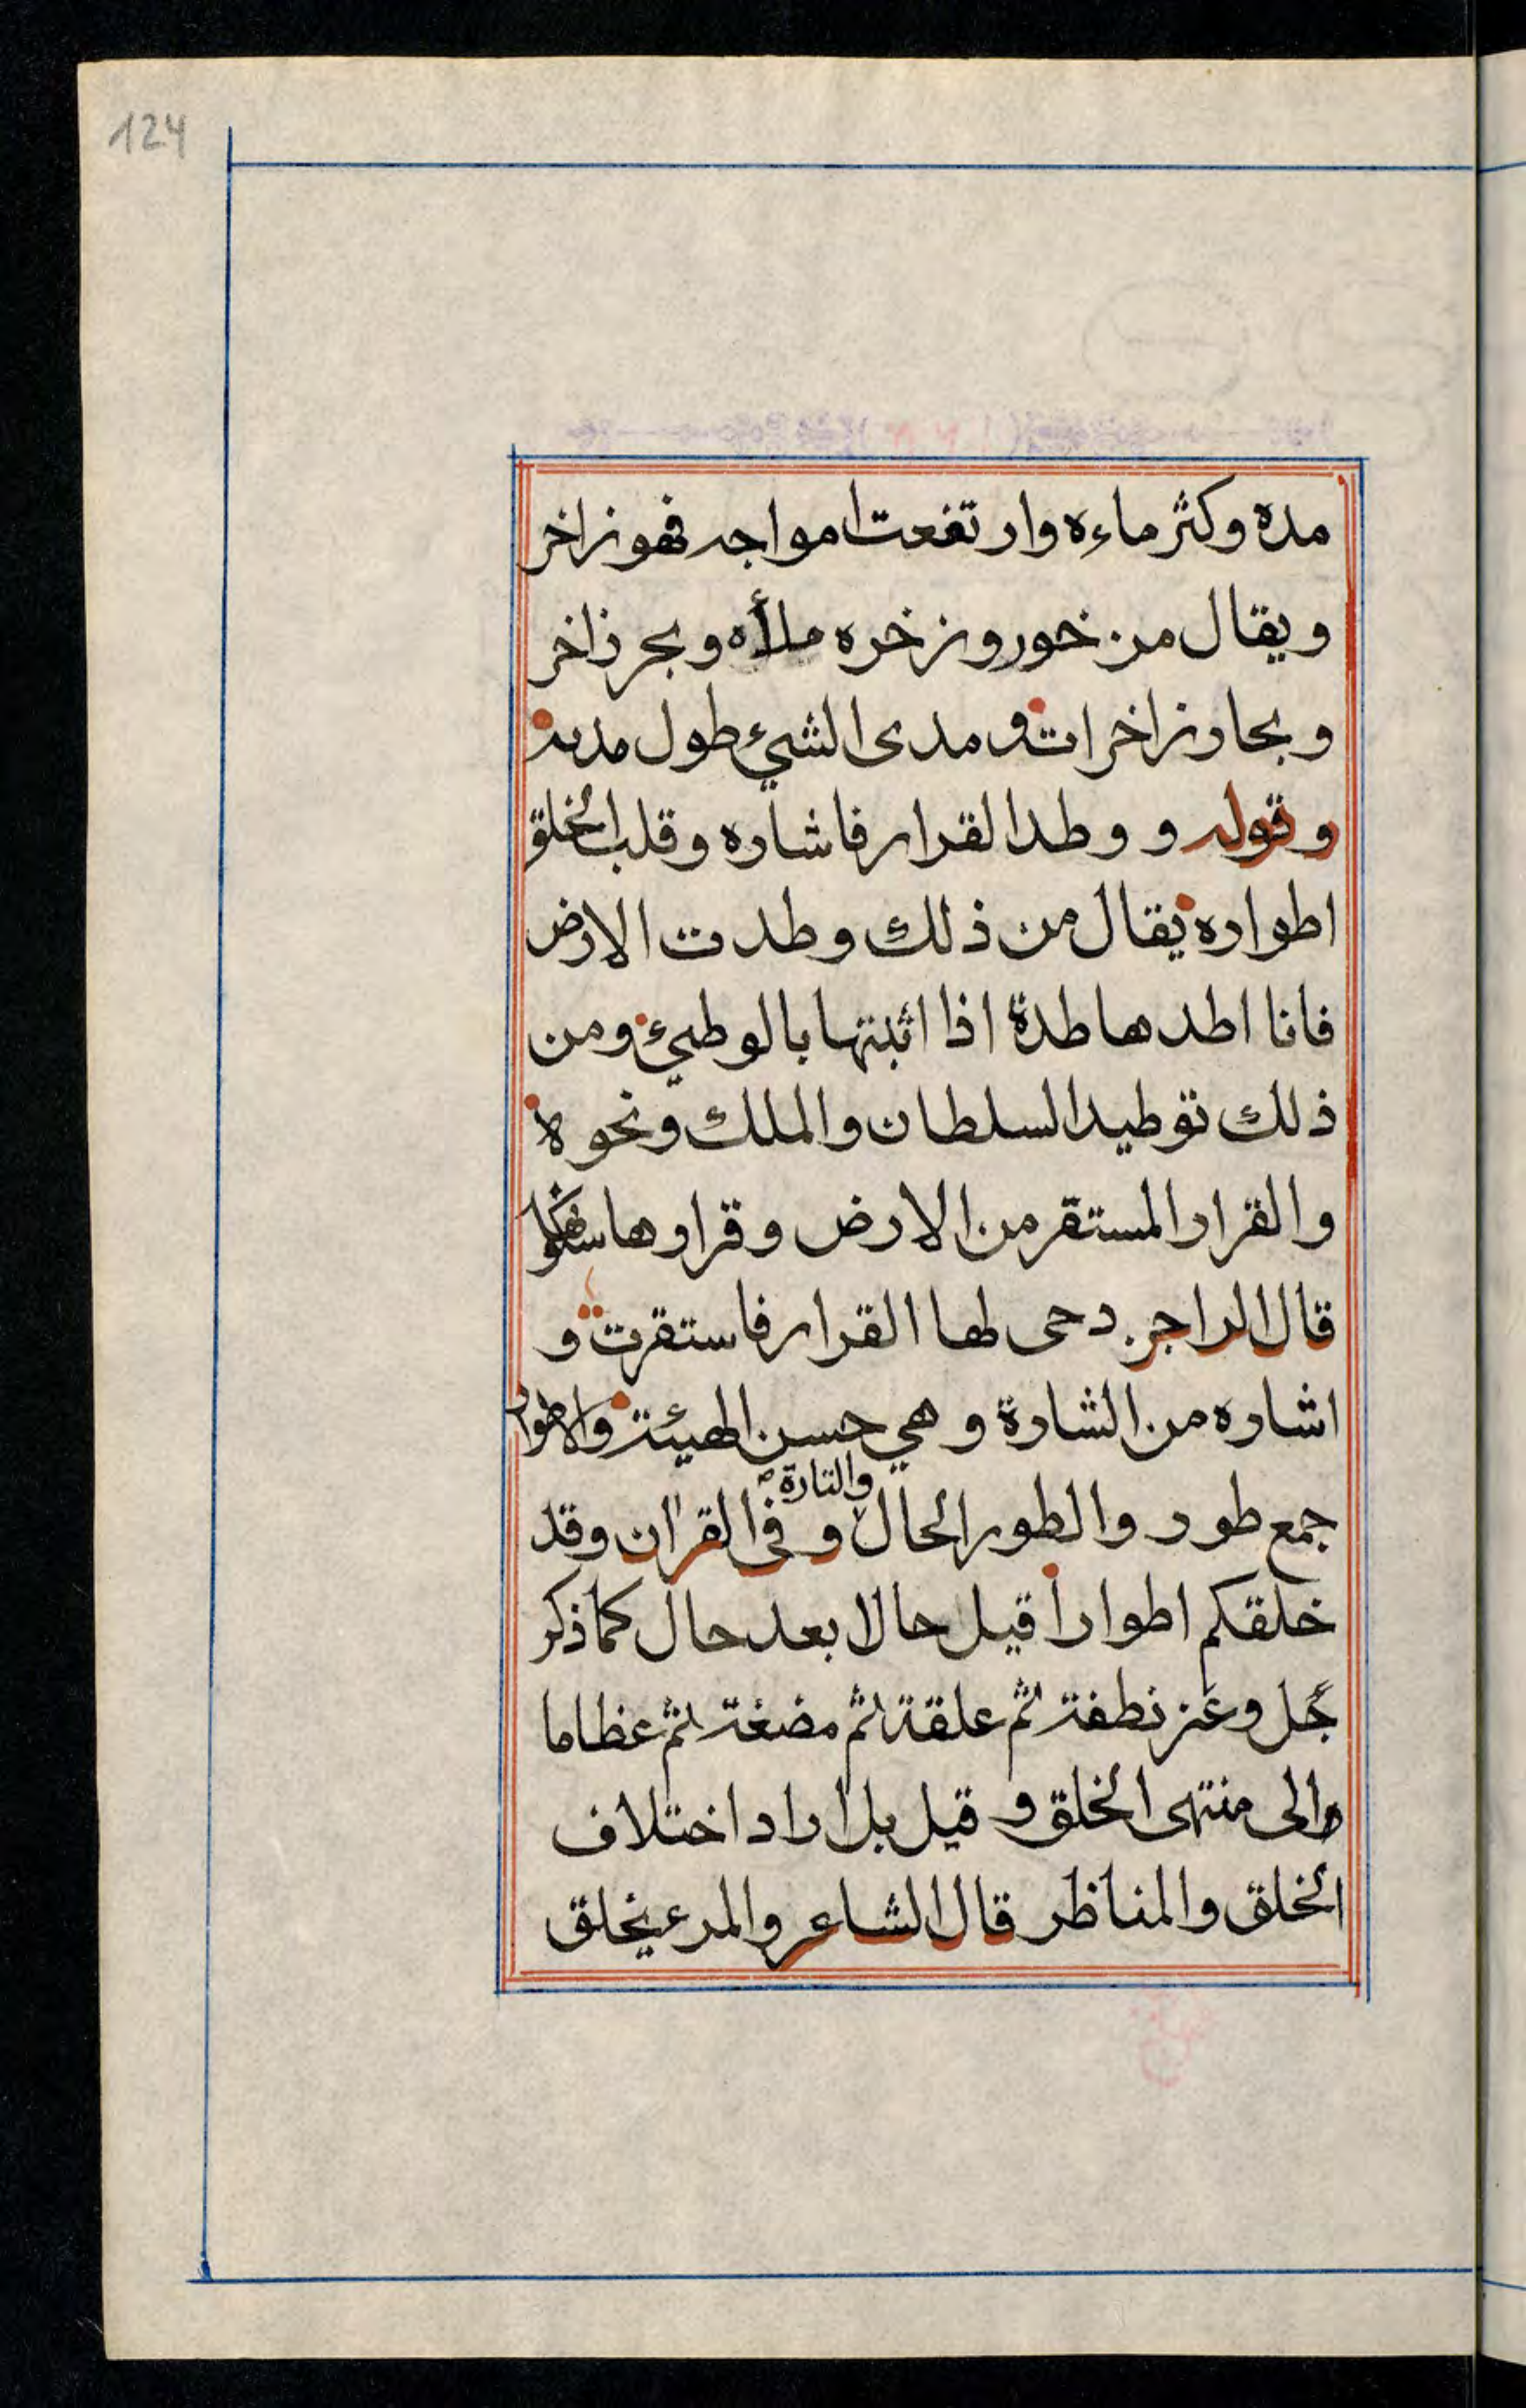 124
مده وكثر ماءه وارتفعت امواجه فهو زاخر
ويقال من خور وزخره ملأه وبحر زاخر
وبحار زاخرات ومدى الشيء طول مدته
وقوله ووطد القرار فاشاره وقلب الخلق
اطواره يقال من ذلك وطدت الارض
فانا اطدها طدة اذا اثبتها بالوطيء ومن
ذلك توطيد السلطان والملك ونحوه
والقرار المستقر من الارض وقرارها
قال الراجز دحى لها القرار فاستقرت و
اشاره من الشارة وهي حسن الهيئة والاطوار
جمع طور والطور الحال والتارة وفي القرآن وقد
خلقكم اطوارا قيل حالا بعد حال كما ذكر
جل وعز نطفة ثم علقة ثم مضغة ثم عظاما
والى منتهى الخلق و قيل بل اراد اختلاف
الخلق والمناظر قال الشاعر والمرء يخلق